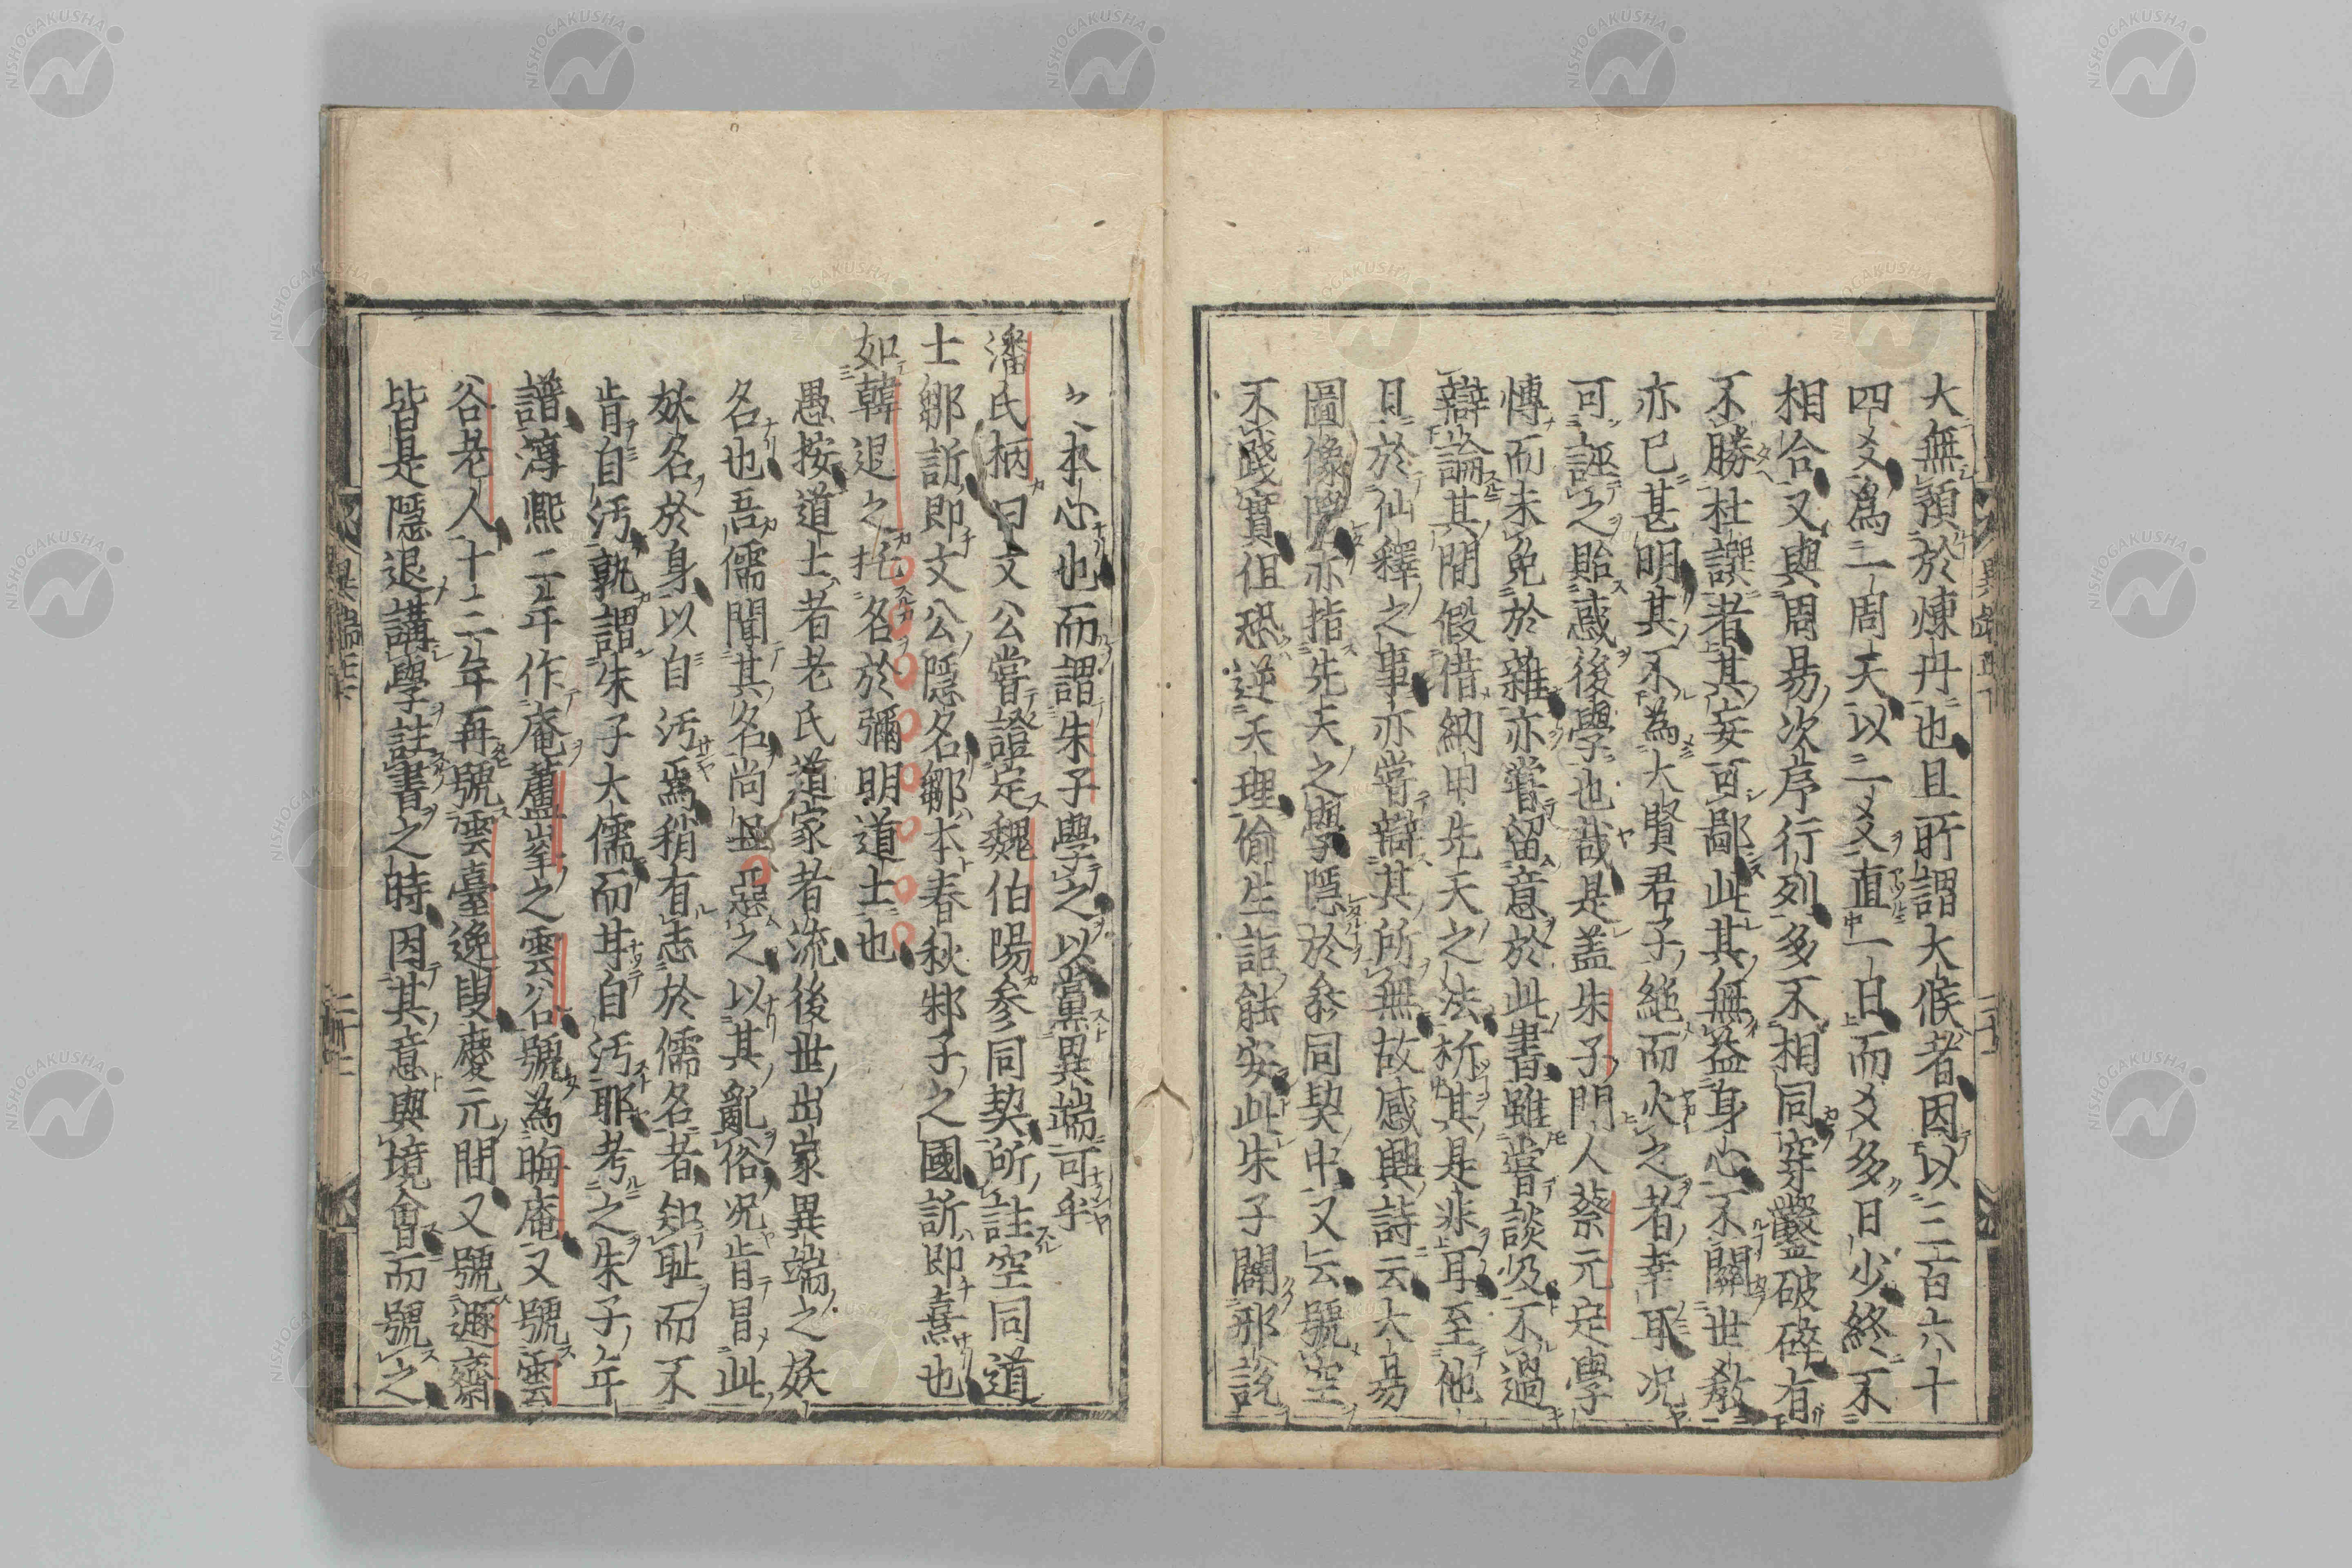 大無預於煉丹也且所謂大候者因以三百六十
四爻爲一周天以二爻直一日而爻多日少終不
相合又與周易次序行列多不相同穿鑿破碎有
不勝杜譔者其妄可鄙此其無益身心不關世教
亦已甚明其不為大賢君子絶而火之者幸耳况
可誣之貽惑後學也哉是盖朱子門人蔡元定學
慱而未免於雜亦嘗留意於此書雖嘗談及不過
辯論其間假借納甲先天之法析其是非耳至他
日於仙釋之事亦嘗辯其所無故感興詩云大易
圖像隱亦指先天之學隱於叅同契中又云號空
不踐實但恐逆天理偷生詎能安此朱子闢邪説
之本心也而謂朱子學之以黨異端可乎
潘氏柄曰文公嘗證定魏伯陽参同契所註空同道
士鄒訢即文公隱名鄒本春秋邾子之國訢即熹也
如韓退之托名於彌明道士也
愚按道士者老氏道家者流後世出家異端之妖
名也吾儒聞其名尚且惡之以其亂俗况肯冒此
妖名於身以自汚焉稍有志於儒名者知耻而不
肯自汚孰謂朱子大儒而甘自汚耶考之朱子年
譜淳熈二年作庵蘆峯之雲谷號為晦庵又號雲
谷老人十二年再號雲臺逸叟慶元間又號遯齋
皆是隱退講學註書之時因其意與境會而號之
NISHOGAKUSHA